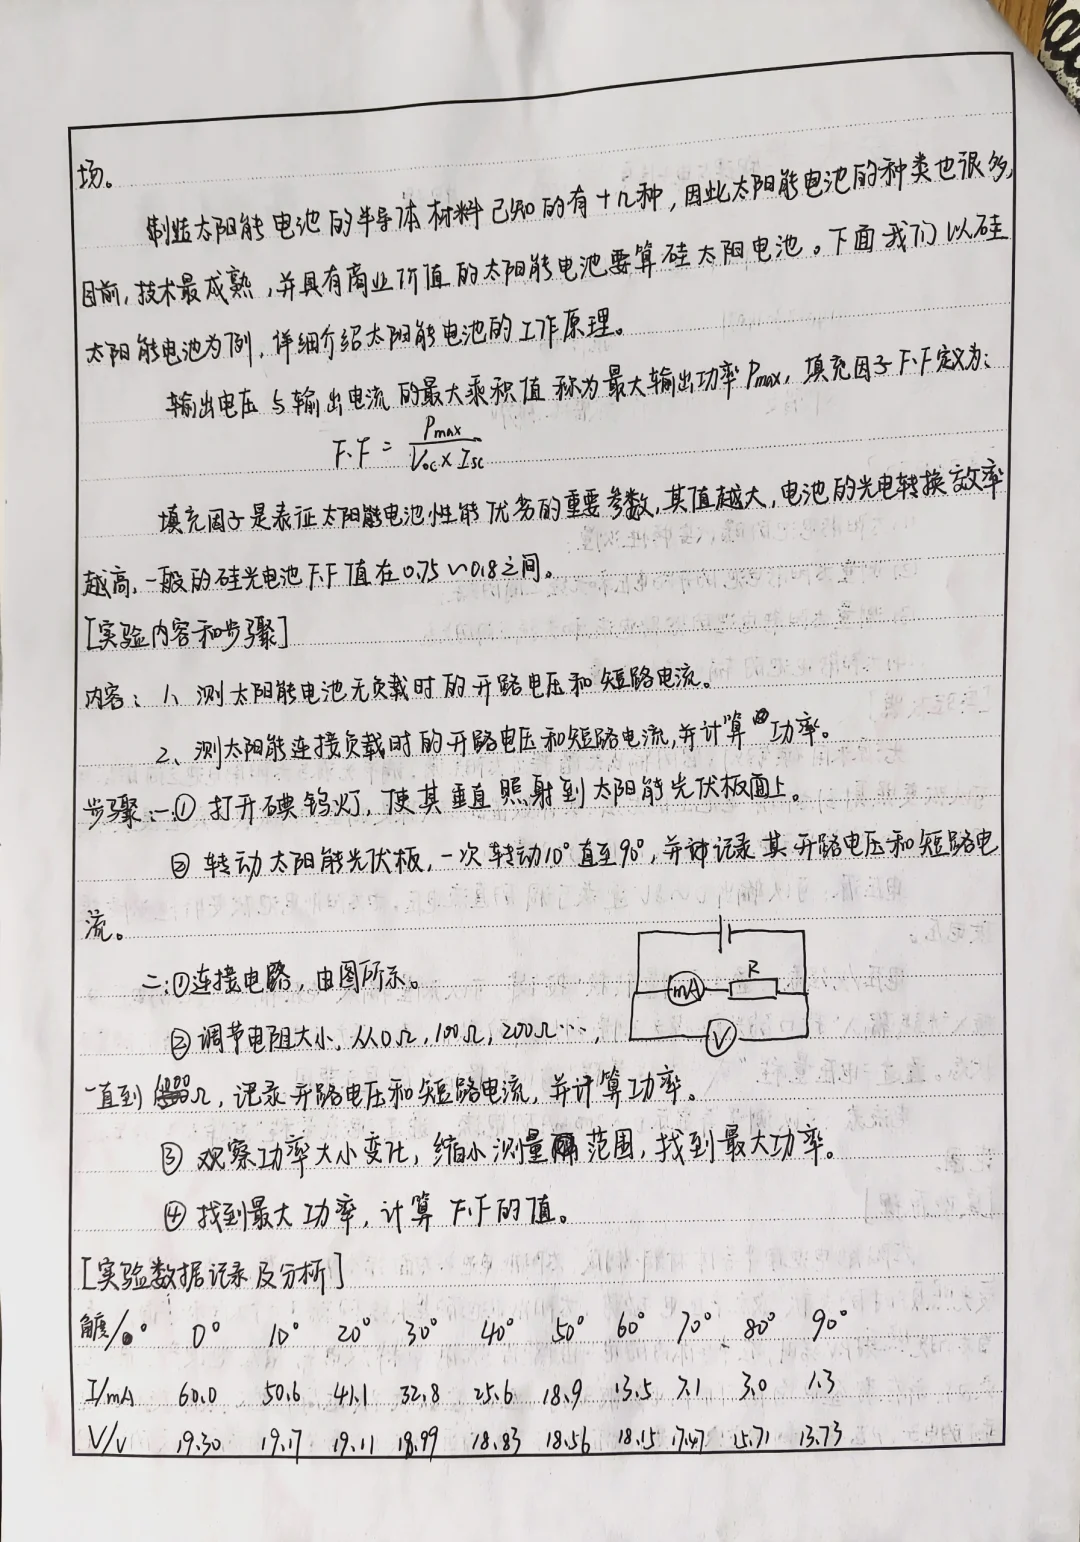 场。
制造太阳能电池的半导体材料已知的有十几种，因此太阳能电池的种类也很多，
目前，技术最成熟，并具有商业价值的太阳能电池要算硅太阳电池。下面我们以硅
太阳能电池为例，详细介绍太阳能电池的工作原理。
输出电压与输出电流的最大乘积值称为最大输出功率Pmax，填充因子F.F定义为：
F.F = Pmax / (Voc × Isc)
填充因子是表征太阳能电池性能优劣的重要参数，其值越大，电池的光电转换效率
越高，一般的硅光电池F.F值在0.75~0.8之间。
[实验内容和步骤]
内容：1、测太阳能电池无负载时的开路电压和短路电流。
2、测太阳能连接负载时的开路电压和短路电流，并计算功率。
步骤：一：① 打开碘钨灯，使其垂直照射到太阳能光伏板面上。
② 转动太阳能光伏板，一次转动10°直至90°，并记录其开路电压和短路电
流。
二：①连接电路，由图所示。
mA R
V
② 调节电阻大小，从0Ω，100Ω，200Ω…，
一直到Ω，记录开路电压和短路电流，并计算功率。
③ 观察功率大小变化，缩小测量范围，找到最大功率。
④ 找到最大功率，计算F.F的值。
[实验数据记录及分析]
角度/° 0° 10° 20° 30° 40° 50° 60° 70° 80° 90°
I/mA 60.0 50.6 41.1 32.8 25.6 18.9 13.5 7.1 3.0 1.3
V/v 19.30 19.17 19.11 18.99 18.83 18.56 18.15 17.47 15.71 13.73